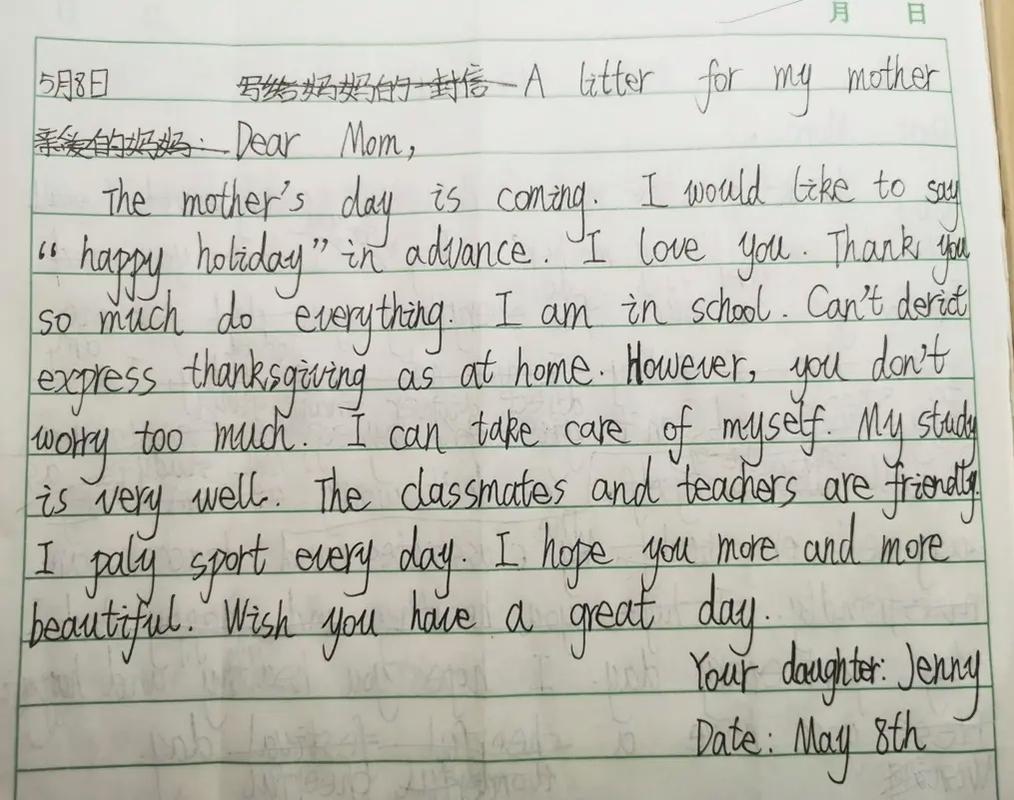 月 日
5月8日 写给妈妈的一封信 A litter for my mother
亲爱的妈妈: Dear Mom,
The mother's day is coming. I would like to say
“happy holiday” in advance. I love you. Thank you
so much do everything. I am in school. Can't derict
express thanksgiving as at home. However, you don't
worry too much. I can take care of myself. My study
is very well. The classmates and teachers are friendly.
I paly sport every day. I hope you more and more
beautiful. Wish you have a great day.
Your daughter: Jenny
Date: May 8th